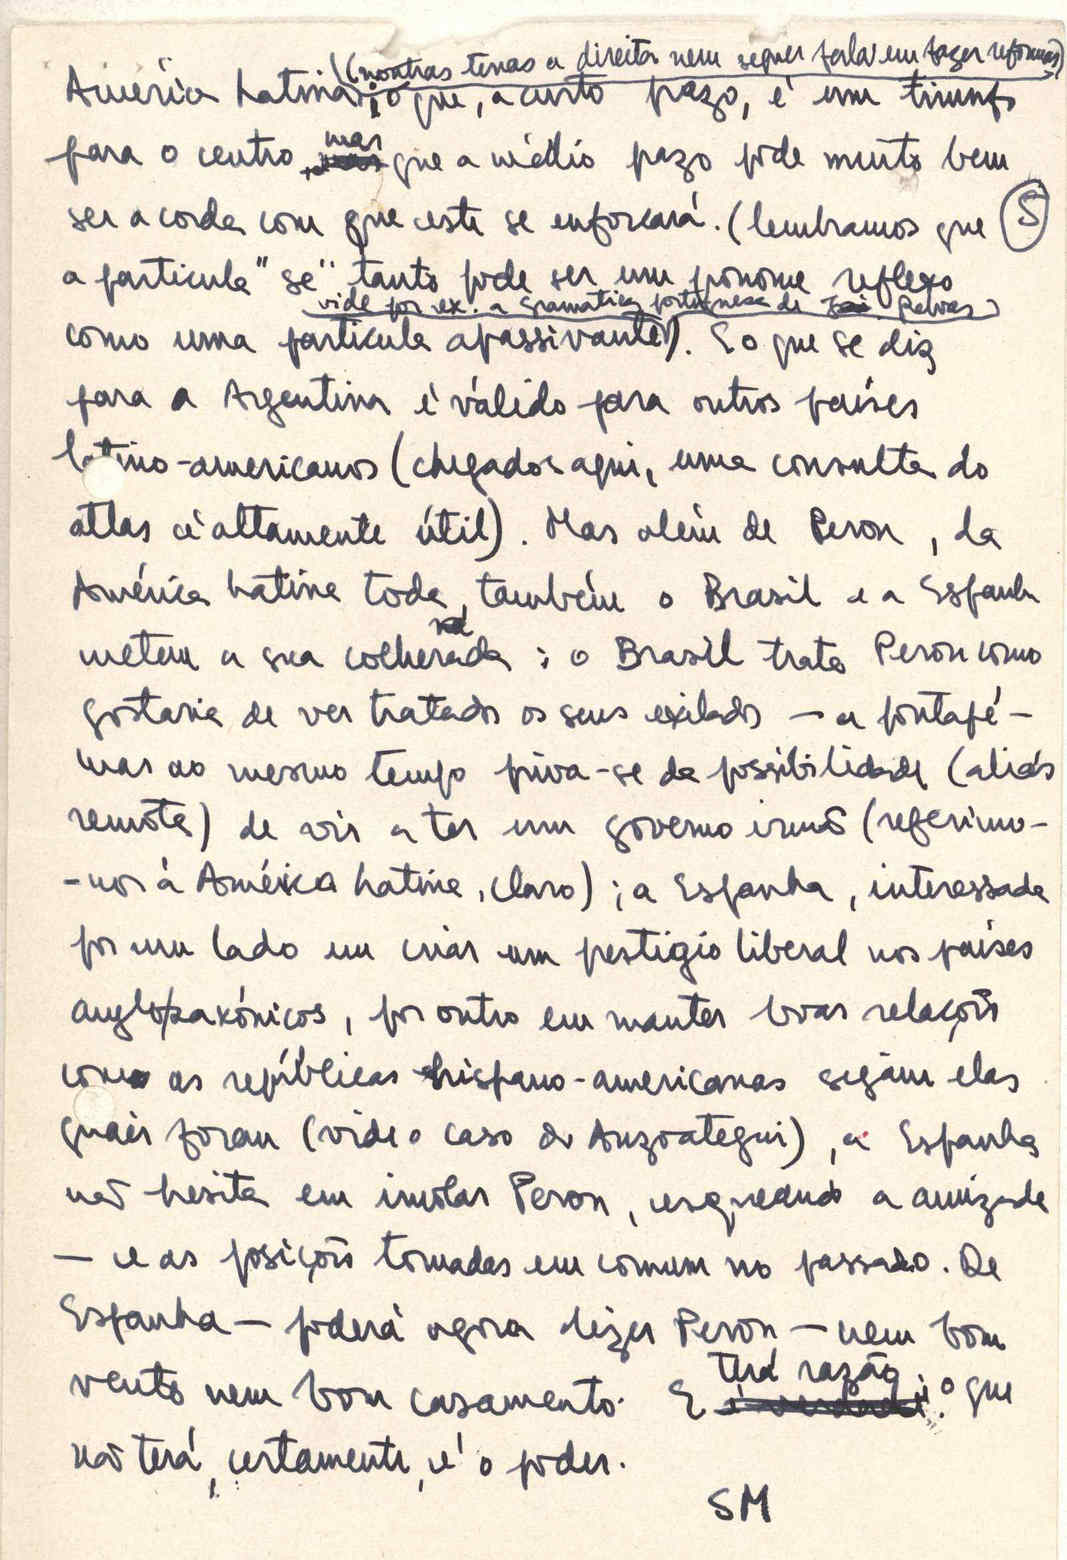 (noutras terras a direita nem sequer fala em fazer reformas)
América Latina; o que, a curto prazo, é um triunfo
para o centro mas que a médio prazo pode muito bem
ser a corda com que este se enforcará. (lembramos que
5
a partícula "se" tanto pode ser um pronome reflexo
vide por ex. a Gramática portuguesa de Relvas
como uma partícula apassivante). E o que se diz
para a Argentina é válido para outros países
latino-americanos (chegados aqui, uma consulta do
atlas é altamente útil). Mas além de Peron, da
América Latina toda, também o Brasil e a Espanha
metem a sua colherada: o Brasil trata Peron como
gostaria de ver tratados os seus exilados — a pontapé —
mas ao mesmo tempo priva-se da possibilidade (aliás
remota) de vir a ter um governo irmão (referimo-
-nos à América Latina, claro); a Espanha, interessada
por um lado em criar um prestígio liberal nos países
anglosaxónicos, por outro em manter boas relações
com as repúblicas hispano-americanas sejam elas
quais foram (vide o caso de Anzoategui), a Espanha
não hesita em imolar Peron, esquecendo a amizade
— e as posições tomadas em comum no passado. De
Espanha — poderá agora dizer Peron — nem bom
vento nem bom casamento. E terá razão; o que
não terá, certamente, é o poder.
SM